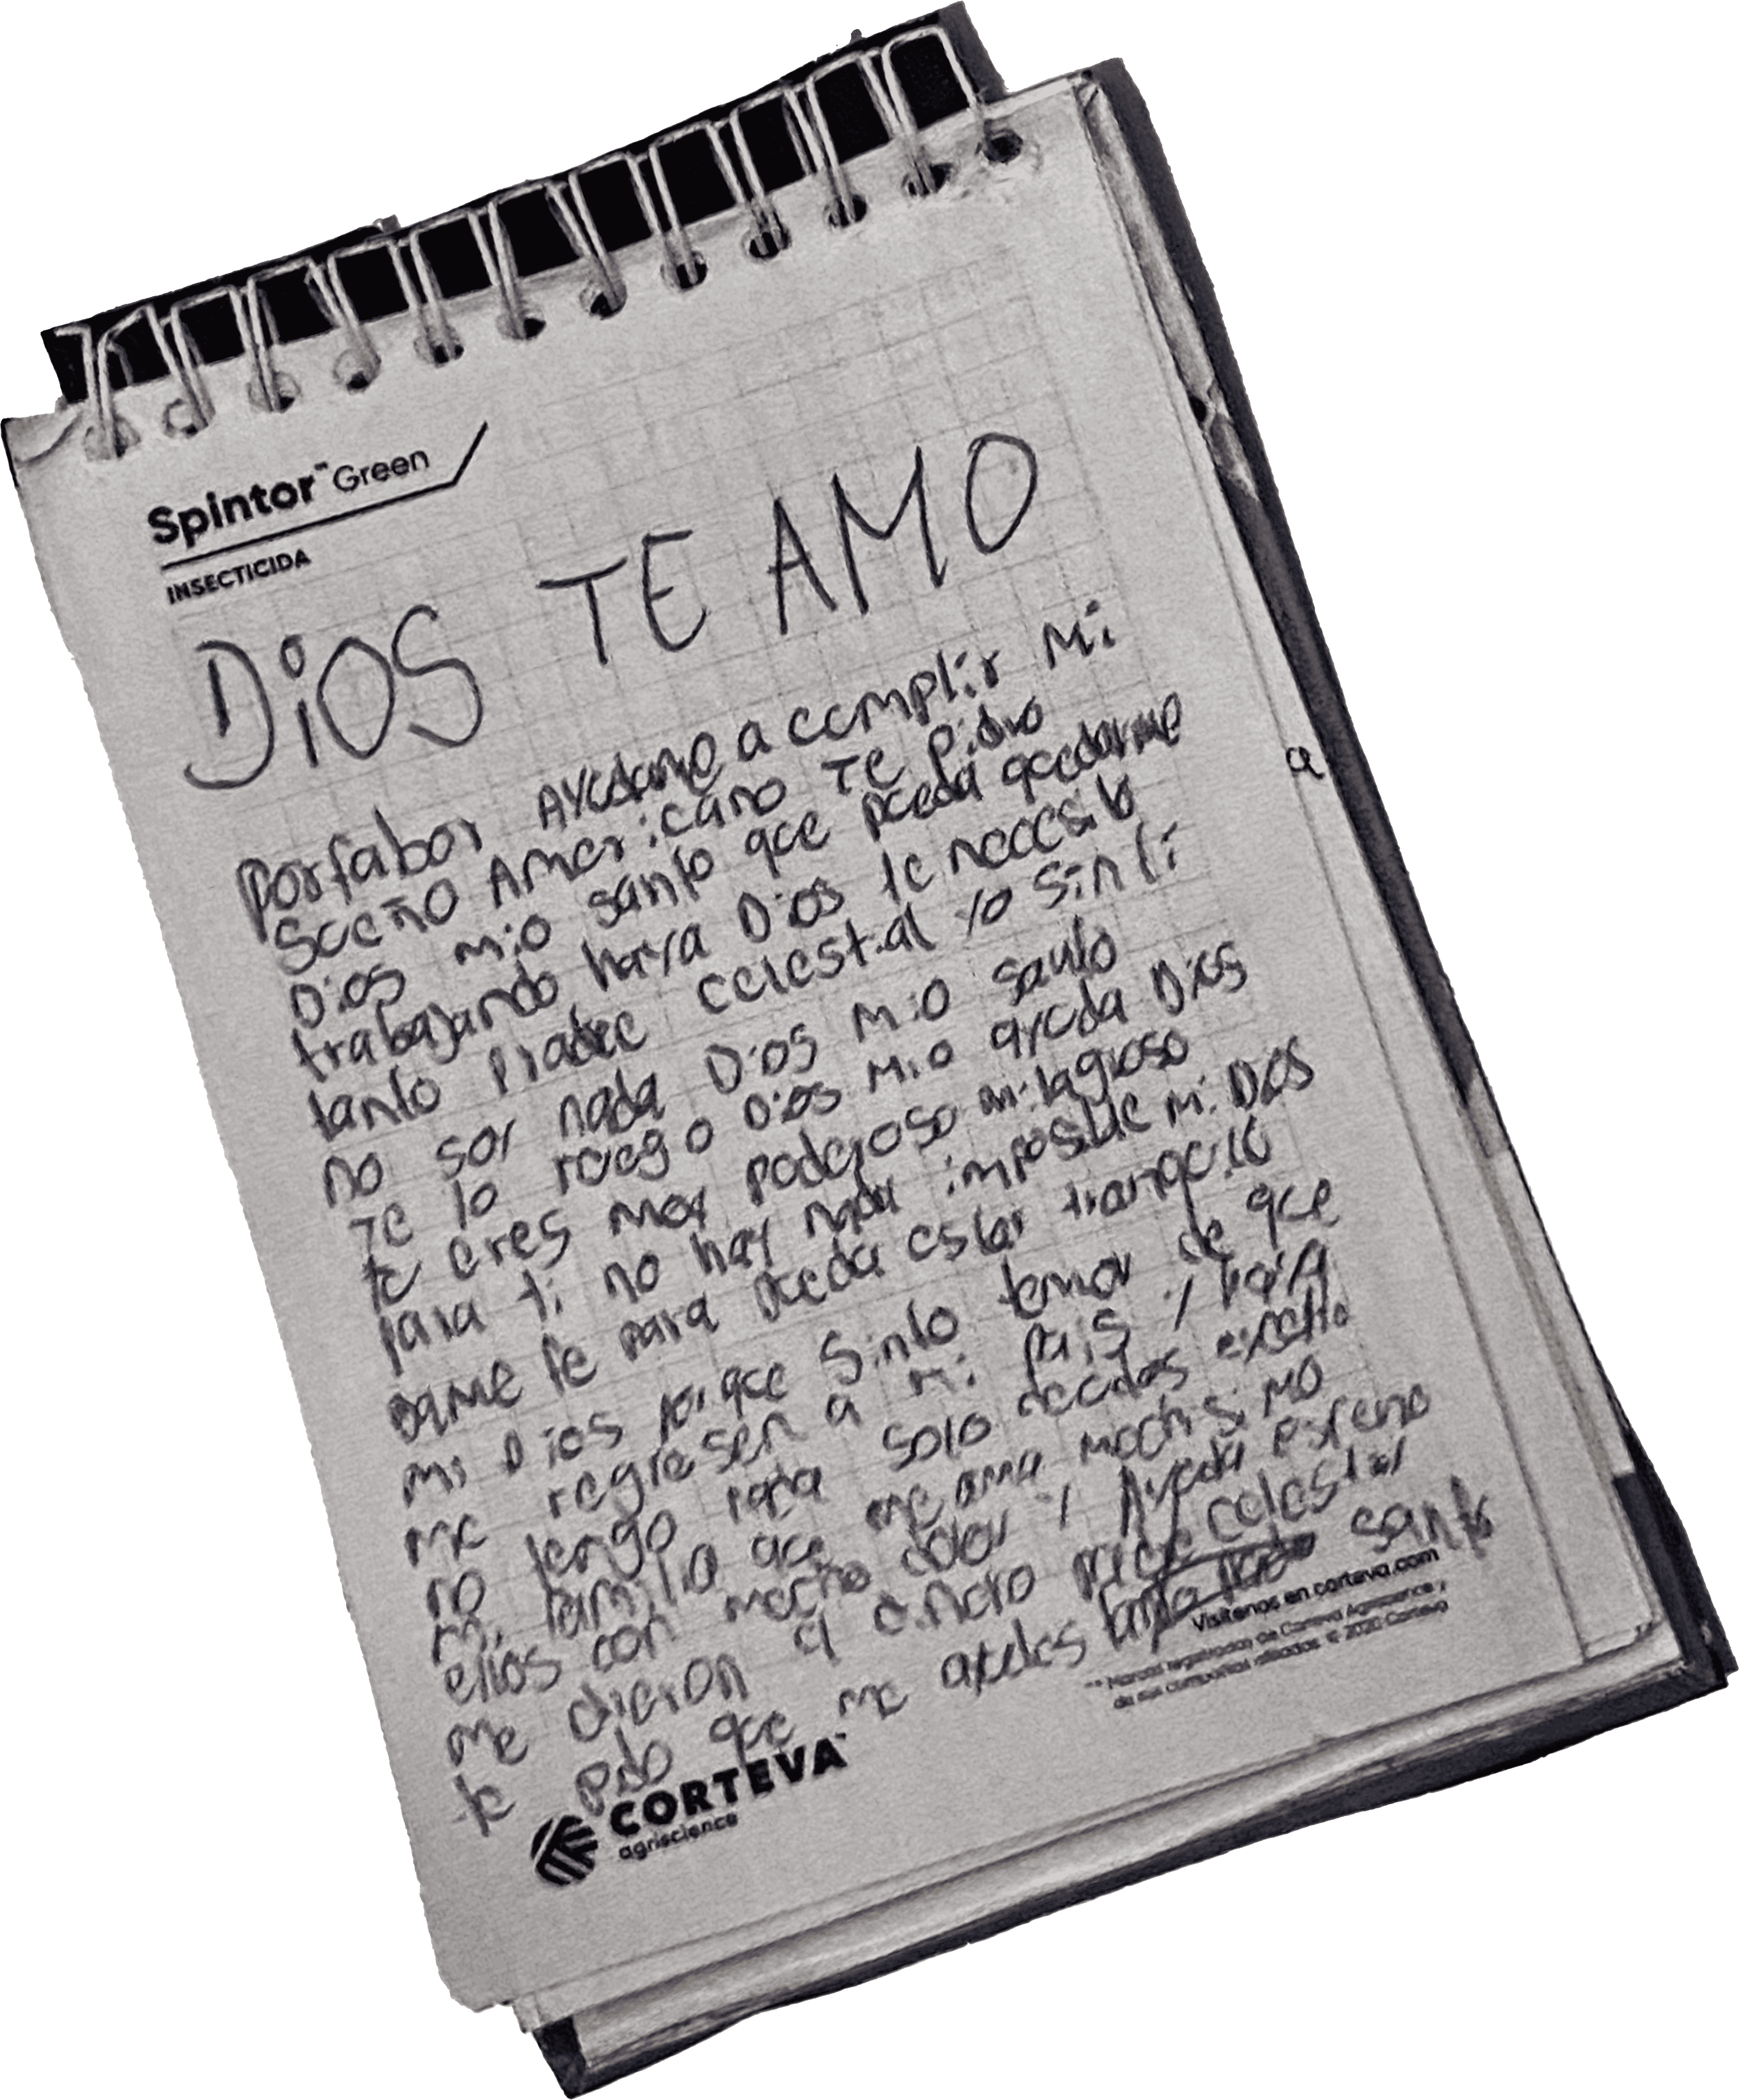 Spintor™ Green
INSECTICIDA
DiOS TE AMO
Porfabor Ayudame a complir Mi
Sueño Americano Te Pidro
Dios mio santo que pueda quedarme
trabajando haya Dios te necesito
tanto Pradre celestial yo sin ti
no soy nada Dios mio santo
Te lo ruego Dios mio ayuda Dios
tu eres muy poderoso milagroso
para ti no hay nada imposible mi Dios
dame fe para pueda estar tranquilo
mi Dios porque Sinto temor de que
me regresen a mi pais y haiA
no tengo nada solo deudas
mi familia que me ama muchisiMO
ellos con mucho dolor y Ayuda
me dieron el dinero celestial
te pido que me ayudes santo
a
Visítenos en corteva.com
™ Marcas registradas de Corteva Agriscience y
de sus compañías afiliadas. © 2020 Corteva
CORTEVA™
agriscience